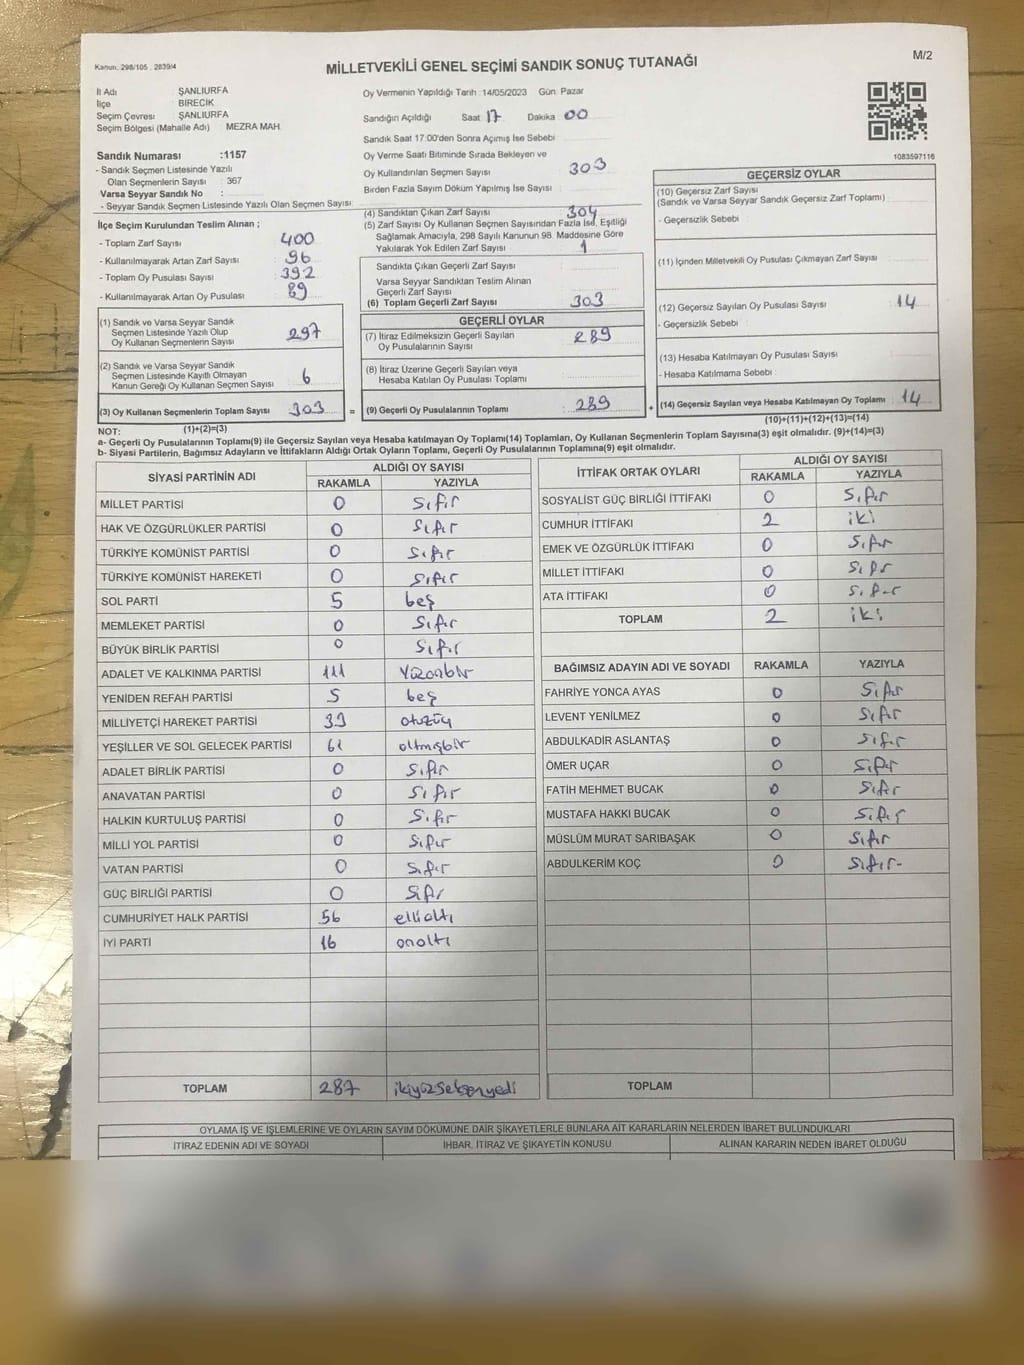 Kanun. 298/105 , 2839/4
M/2
MİLLETVEKİLİ GENEL SEÇİMİ SANDIK SONUÇ TUTANAĞI
İl Adı ŞANLIURFA
İlçe BİRECİK
Seçim Çevresi ŞANLIURFA
Seçim Bölgesi (Mahalle Adı) MEZRA MAH.
Sandık Numarası :1157
- Sandık Seçmen Listesinde Yazılı
Olan Seçmenlerin Sayısı : 367
Varsa Seyyar Sandık No :
- Seyyar Sandık Seçmen Listesinde Yazılı Olan Seçmen Sayısı:
Oy Vermenin Yapıldığı Tarih : 14/05/2023 Gün: Pazar
Sandığın Açıldığı Saat 17 Dakika 00
Sandık Saat 17:00'den Sonra Açımış İse Sebebi
Oy Verme Saati Bitiminde Sırada Bekleyen ve
Oy Kullandırılan Seçmen Sayısı 303
Birden Fazla Sayım Döküm Yapılmış İse Sayısı :
1083597116
İlçe Seçim Kurulundan Teslim Alınan ;
- Toplam Zarf Sayısı 400
- Kullanılmayarak Artan Zarf Sayısı : 96
- Toplam Oy Pusulası Sayısı 392
- Kullanılmayarak Artan Oy Pusulası : 89
(1) Sandık ve Varsa Seyyar Sandık
Seçmen Listesinde Yazılı Olup
Oy Kullanan Seçmenlerin Sayısı 297
(2) Sandık ve Varsa Seyyar Sandık
Seçmen Listesinde Kayıtlı Olmayan
Kanun Gereği Oy Kullanan Seçmen Sayısı 6
(3) Oy Kullanan Seçmenlerin Toplam Sayısı 303 =
(1)+(2)=(3)
(4) Sandıktan Çıkan Zarf Sayısı 304
(5) Zarf Sayısı Oy Kullanan Seçmen Sayısından Fazla İse, Eşitliği
Sağlamak Amacıyla, 298 Sayılı Kanunun 98. Maddesine Göre
Yakılarak Yok Edilen Zarf Sayısı 1
Sandıkta Çıkan Geçerli Zarf Sayısı
Varsa Seyyar Sandıktan Teslim Alınan
Geçerli Zarf Sayısı
(6) Toplam Geçerli Zarf Sayısı 303
GEÇERLİ OYLAR
(7) İtiraz Edilmeksizin Geçerli Sayılan
Oy Pusulalarının Sayısı 289
(8) İtiraz Üzerine Geçerli Sayılan veya
Hesaba Katılan Oy Pusulası Toplamı
(9) Geçerli Oy Pusulalarının Toplamı : 289 +
GEÇERSİZ OYLAR
(10) Geçersiz Zarf Sayısı
(Sandık ve Varsa Seyyar Sandık Geçersiz Zarf Toplamı) :
- Geçersizlik Sebebi :
(11) İçinden Milletvekili Oy Pusulası Çıkmayan Zarf Sayısı
(12) Geçersiz Sayılan Oy Pusulası Sayısı : 14
- Geçersizlik Sebebi :
(13) Hesaba Katılmayan Oy Pusulası Sayısı
- Hesaba Katılmama Sebebi :
(14) Geçersiz Sayılan veya Hesaba Katılmayan Oy Toplamı : 14
(10)+(11)+(12)+(13)=(14)
NOT:
a- Geçerli Oy Pusulalarının Toplamı(9) ile Geçersiz Sayılan veya Hesaba katılmayan Oy Toplamı(14) Toplamları, Oy Kullanan Seçmenlerin Toplam Sayısına(3) eşit olmalıdır. (9)+(14)=(3)
b- Siyasi Partilerin, Bağımsız Adayların ve İttifakların Aldığı Ortak Oyların Toplamı, Geçerli Oy Pusulalarının Toplamına(9) eşit olmalıdır.
SİYASİ PARTİNİN ADI ALDIĞI OY SAYISI
RAKAMLA YAZIYLA
MİLLET PARTİSİ 0 sıfır
HAK VE ÖZGÜRLÜKLER PARTİSİ 0 sıfır
TÜRKİYE KOMÜNİST PARTİSİ 0 sıfır
TÜRKİYE KOMÜNİST HAREKETİ 0 sıfır
SOL PARTİ 5 beş
MEMLEKET PARTİSİ 0 sıfır
BÜYÜK BİRLİK PARTİSİ 0 sıfır
ADALET VE KALKINMA PARTİSİ 111 Yüzonbir
YENİDEN REFAH PARTİSİ 5 beş
MİLLİYETÇİ HAREKET PARTİSİ 33 otuzüç
YEŞİLLER VE SOL GELECEK PARTİSİ 61 altmışbir
ADALET BİRLİK PARTİSİ 0 sıfır
ANAVATAN PARTİSİ 0 sıfır
HALKIN KURTULUŞ PARTİSİ 0 sıfır
MİLLİ YOL PARTİSİ 0 sıfır
VATAN PARTİSİ 0 sıfır
GÜÇ BİRLİĞİ PARTİSİ 0 sıfır
CUMHURİYET HALK PARTİSİ 56 ellialtı
İYİ PARTİ 16 onaltı
TOPLAM 287 ikiyüzseksenyedi
İTTİFAK ORTAK OYLARI ALDIĞI OY SAYISI
RAKAMLA YAZIYLA
SOSYALİST GÜÇ BİRLİĞİ İTTİFAKI 0 sıfır
CUMHUR İTTİFAKI 2 iki
EMEK VE ÖZGÜRLÜK İTTİFAKI 0 sıfır
MİLLET İTTİFAKI 0 sıfır
ATA İTTİFAKI 0 sıfır
TOPLAM 2 iki
BAĞIMSIZ ADAYIN ADI VE SOYADI RAKAMLA YAZIYLA
FAHRİYE YONCA AYAS 0 sıfır
LEVENT YENİLMEZ 0 sıfır
ABDULKADİR ASLANTAŞ 0 sıfır
ÖMER UÇAR 0 sıfır
FATİH MEHMET BUCAK 0 sıfır
MUSTAFA HAKKI BUCAK 0 sıfır
MÜSLÜM MURAT SARIBAŞAK 0 sıfır
ABDULKERİM KOÇ 0 sıfır-
TOPLAM
OYLAMA İŞ VE İŞLEMLERİNE VE OYLARIN SAYIM DÖKÜMÜNE DAİR ŞİKAYETLERLE BUNLARA AİT KARARLARIN NELERDEN İBARET BULUNDUKLARI
İTİRAZ EDENİN ADI VE SOYADI İHBAR, İTİRAZ VE ŞİKAYETİN KONUSU ALINAN KARARIN NEDEN İBARET OLDUĞU